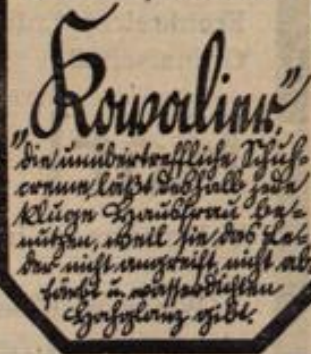 „Kavalier“,
die unübertreffliche Schuh-
creme, läßt deshalb jede
kluge Hausfrau be-
nutzen, weil sie das Le-
der nicht angreift, nicht ab-
färbt u. wasserdichten
Hochglanz gibt.